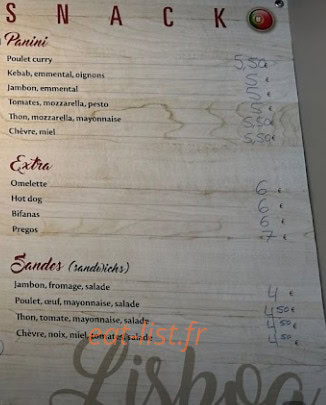 SNACK
Panini
Poulet curry 5,50€
Kebab, emmental, oignons 5 €
Jambon, emmental 5 €
Tomates, mozzarella, pesto 5 €
Thon, mozzarella, mayonnaise 5,50€
Chèvre, miel 5,50€
Extra
Omelette 6 €
Hot dog 6 €
Bifanas 6 €
Pregos 7 €
Sandes (sandwichs)
Jambon, fromage, salade 4 €
Poulet, œuf, mayonnaise, salade 4,50 €
Thon, tomate, mayonnaise, salade 4,50 €
Chèvre, noix, miel, tomates, salade 4,50 €
eat-list.fr
Lisboa